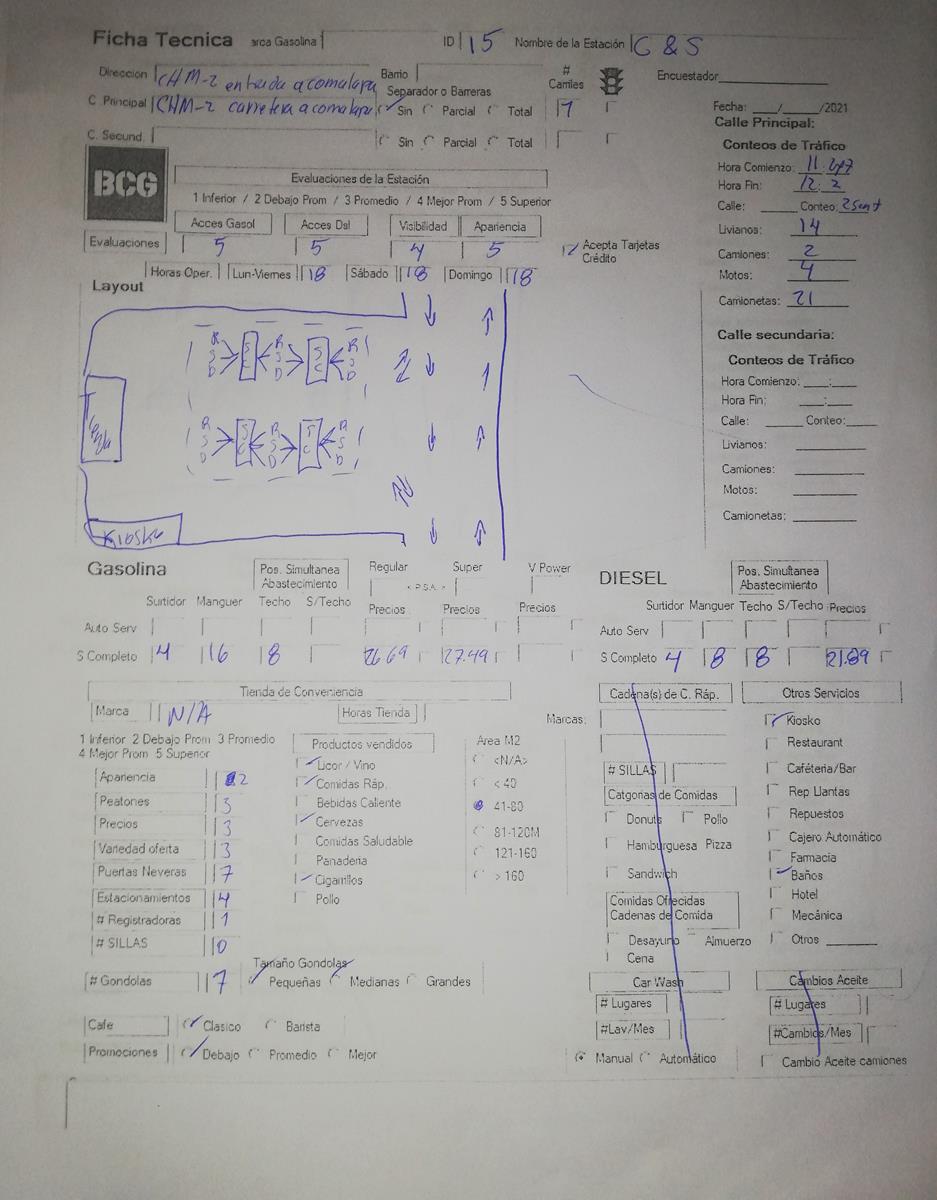 Ficha Tecnica arca Gasolina ID 15 Nombre de la Estación G & S
Direccion CHM-2 entrada a comalapa Barrio # Carriles Encuestador
Separador o Barreras
C Principal CHM-2 carretera a comalapa Sin Parcial Total 1 Fecha: ___/___/2021
C. Secund. Sin Parcial Total
Calle Principal:
Conteos de Tráfico
Hora Comienzo: 11:47
Hora Fin: 12: 2
Calle: Conteo: 2 sent
Livianos: 14
Camiones: 2
Motos: 4
Camionetas: 21
BCG
Evaluaciones de la Estación
1 Inferior / 2 Debajo Prom / 3 Promedio / 4 Mejor Prom / 5 Superior
Acces Gasol Acces Dsl Visibilidad Apariencia
Evaluaciones 5 5 4 5 Acepta Tarjetas Crédito
Horas Oper. Lun-Viernes 18 Sábado 18 Domingo 18
Layout
R S D S C R S D S C R S D
R S D S C R S D S C R S D
Kiosko
Calle secundaria:
Conteos de Tráfico
Hora Comienzo: ___:___
Hora Fin; ___:___
Calle: Conteo:
Livianos:
Camiones:
Motos:
Camionetas:
Gasolina
Pos. Simultanea Abastecimiento Regular Super V Power
< P.S.A. >
Surtidor Manguer Techo S/Techo Precios Precios Precios
Auto Serv
S Completo 4 16 8 26.69 27.49
DIESEL
Pos. Simultanea Abastecimiento
Surtidor Manguer Techo S/Techo Precios
Auto Serv
S Completo 4 8 8 21.89
Tienda de Conveniencia
Marca N/A Horas Tienda
1 Inferior 2 Debajo Prom 3 Promedio
4 Mejor Prom 5 Superior
Apariencia 2
Peatones 3
Precios 3
Variedad oferta 3
Puertas Neveras 7
Estacionamientos 4
# Registradoras 1
# SILLAS 0
# Gondolas 7
Productos vendidos
Licor / Vino
Comidas Ráp.
Bebidas Caliente
Cervezas
Comidas Saludable
Panaderia
Cigarrillos
Pollo
Area M2
<N/A>
< 40
41-80
81-120M
121-160
> 160
Tamaño Gondolas
Pequeñas Medianas Grandes
Cafe Clasico Barista
Promociones Debajo Promedio Mejor
Cadena(s) de C. Ráp.
Marcas:
# SILLAS
Catgorias de Comidas
Donuts Pollo
Hamburguesa Pizza
Sandwich
Comidas Ofrecidas
Cadenas de Comida
Desayuno Almuerzo
Cena
Car Wash
# Lugares
#Lav/Mes
Manual Automático
Otros Servicios
Kiosko
Restaurant
Caféteria/Bar
Rep Llantas
Repuestos
Cajero Automático
Farmacia
Baños
Hotel
Mecánica
Otros
Cambios Aceite
# Lugares
#Cambios/Mes
Cambio Aceite camiones